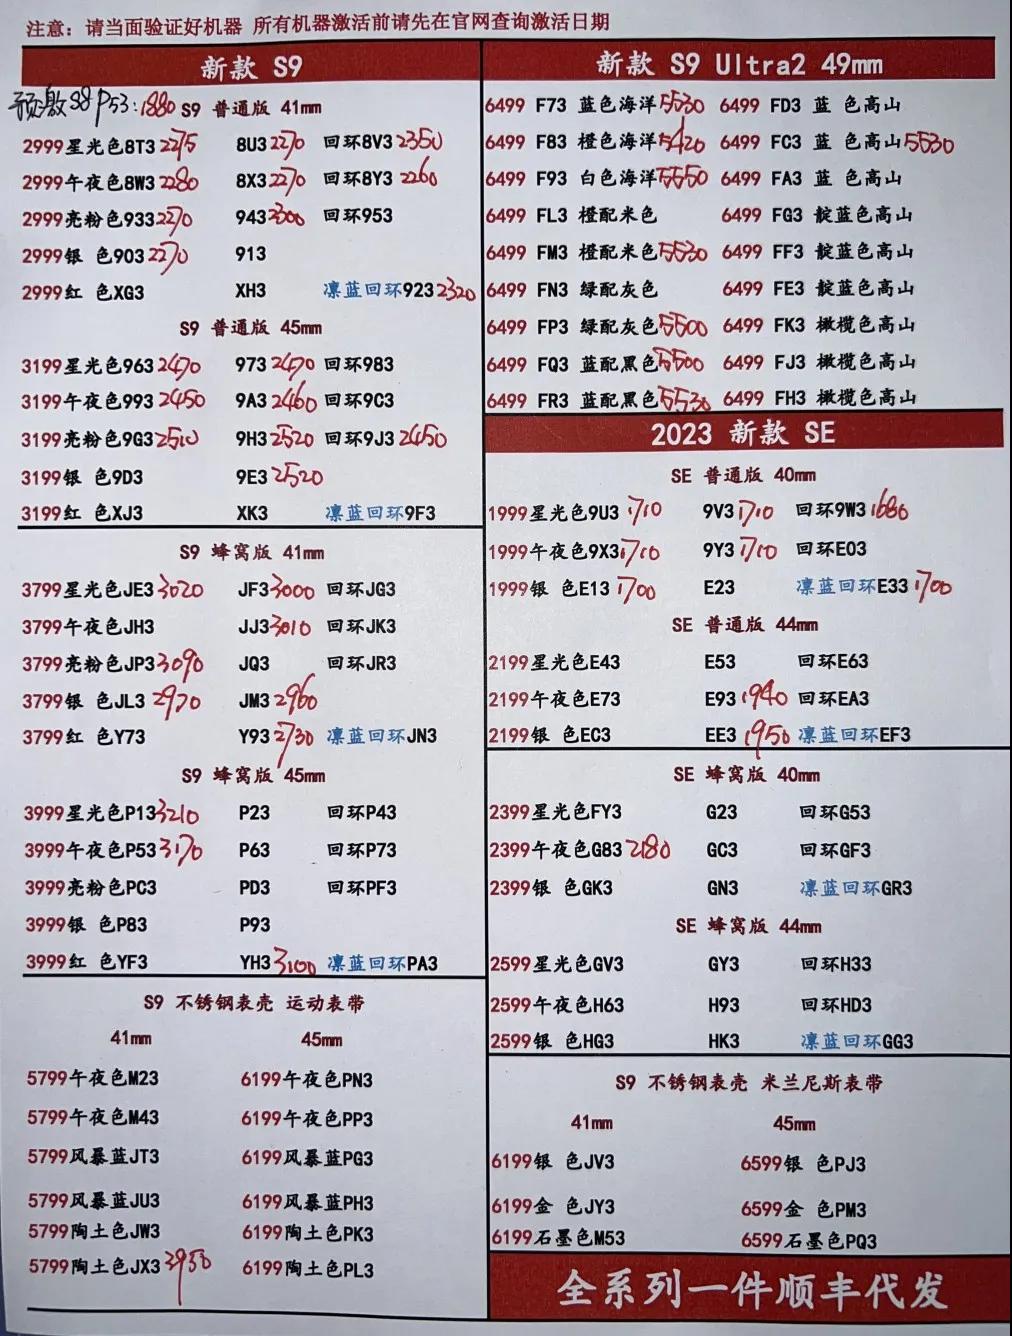 注意：请当面验证好机器 所有机器激活前请先在官网查询激活日期
新款 S9
预激S8 P53:1880 S9 普通版 41mm
2999星光色8T3 2275 8U3 2270 回环8V3 2350
2999午夜色8W3 2280 8X3 2270 回环8Y3 2260
2999亮粉色933 2270 943 2300 回环953
2999银 色903 2270 913
2999红 色XG3 XH3 凛蓝回环923 2320
S9 普通版 45mm
3199星光色963 2470 973 2470 回环983
3199午夜色993 2450 9A3 2460 回环9C3
3199亮粉色9G3 2510 9H3 2520 回环9J3 2450
3199银 色9D3 9E3 2520
3199红 色XJ3 XK3 凛蓝回环9F3
S9 蜂窝版 41mm
3799星光色JE3 3020 JF3 3000 回环JG3
3799午夜色JH3 JJ3 3010 回环JK3
3799亮粉色JP3 3090 JQ3 回环JR3
3799银 色JL3 2970 JM3 2960
3799红 色Y73 Y93 2730 凛蓝回环JN3
S9 蜂窝版 45mm
3999星光色P13 3210 P23 回环P43
3999午夜色P53 3170 P63 回环P73
3999亮粉色PC3 PD3 回环PF3
3999银 色P83 P93
3999红 色YF3 YH3 3100 凛蓝回环PA3
S9 不锈钢表壳 运动表带
41mm 45mm
5799午夜色M23 6199午夜色PN3
5799午夜色M43 6199午夜色PP3
5799风暴蓝JT3 6199风暴蓝PG3
5799风暴蓝JU3 6199风暴蓝PH3
5799陶土色JW3 6199陶土色PK3
5799陶土色JX3 3950 6199陶土色PL3
新款 S9 Ultra2 49mm
6499 F73 蓝色海洋5530 6499 FD3 蓝 色高山
6499 F83 橙色海洋5420 6499 FC3 蓝 色高山5530
6499 F93 白色海洋5550 6499 FA3 蓝 色高山
6499 FL3 橙配米色 6499 FG3 靛蓝色高山
6499 FM3 橙配米色5530 6499 FF3 靛蓝色高山
6499 FN3 绿配灰色 6499 FE3 靛蓝色高山
6499 FP3 绿配灰色5500 6499 FK3 橄榄色高山
6499 FQ3 蓝配黑色5500 6499 FJ3 橄榄色高山
6499 FR3 蓝配黑色5530 6499 FH3 橄榄色高山
2023 新款 SE
SE 普通版 40mm
1999星光色9U3 1710 9V3 1710 回环9W3 1680
1999午夜色9X3 1710 9Y3 1710 回环E03
1999银 色E13 1700 E23 凛蓝回环E33 1700
SE 普通版 44mm
2199星光色E43 E53 回环E63
2199午夜色E73 E93 1940 回环EA3
2199银 色EC3 EE3 1950 凛蓝回环EF3
SE 蜂窝版 40mm
2399星光色FY3 G23 回环G53
2399午夜色G83 2180 GC3 回环GF3
2399银 色GK3 GN3 凛蓝回环GR3
SE 蜂窝版 44mm
2599星光色GV3 GY3 回环H33
2599午夜色H63 H93 回环HD3
2599银 色HG3 HK3 凛蓝回环GG3
S9 不锈钢表壳 米兰尼斯表带
41mm 45mm
6199银 色JV3 6599银 色PJ3
6199金 色JY3 6599金 色PM3
6199石墨色M53 6599石墨色PQ3
全系列一件顺丰代发